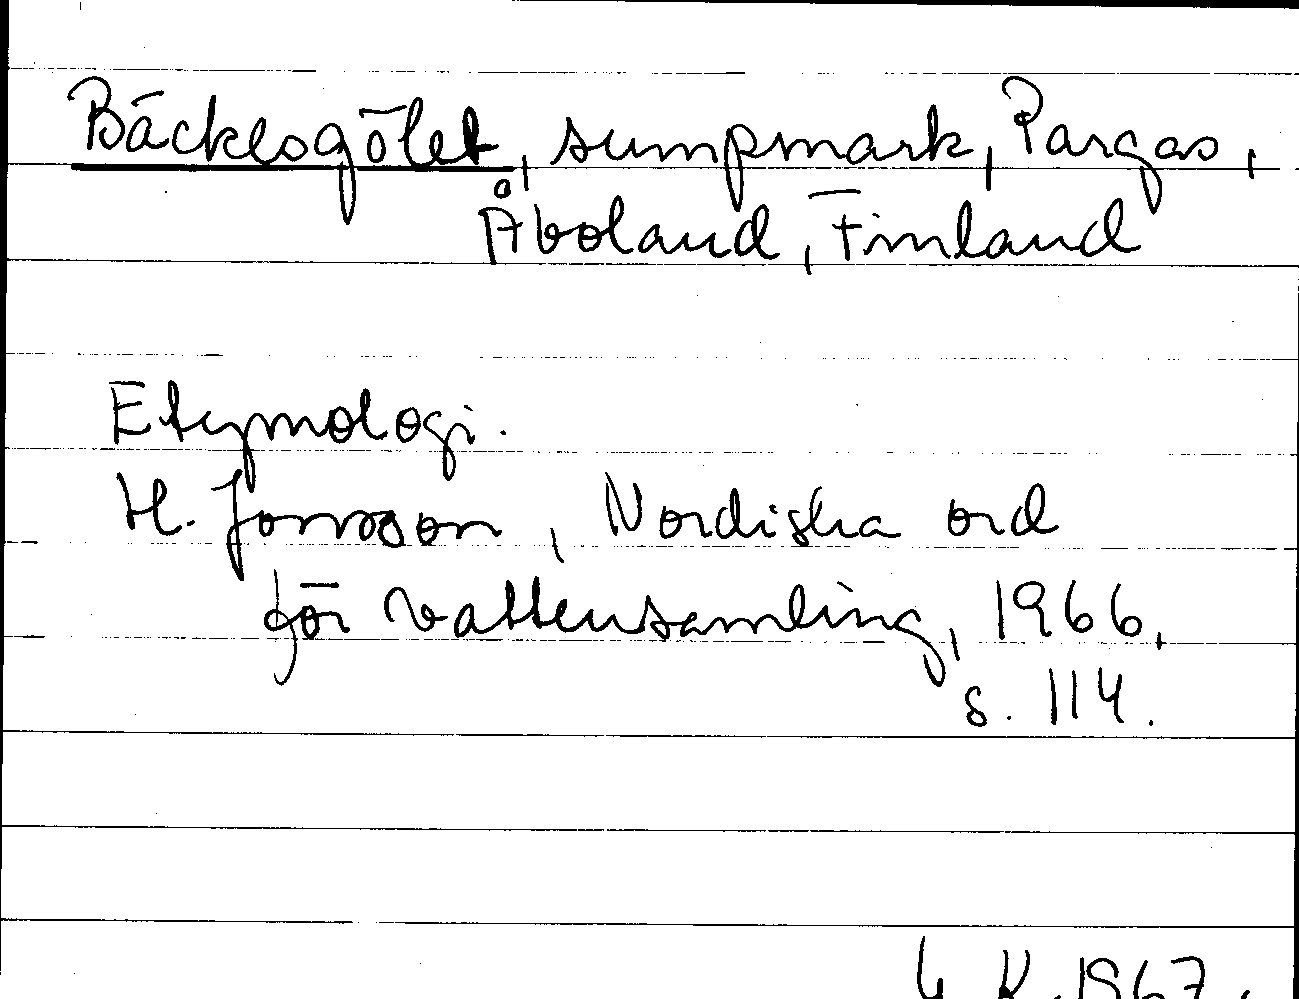 Bäcksgölet, sumpmark, Pargas,
Åboland, Finland
Etymologi.
H. Jonsson, Nordiska ord
för vattensamling, 1966,
s. 114.
K. 1967.